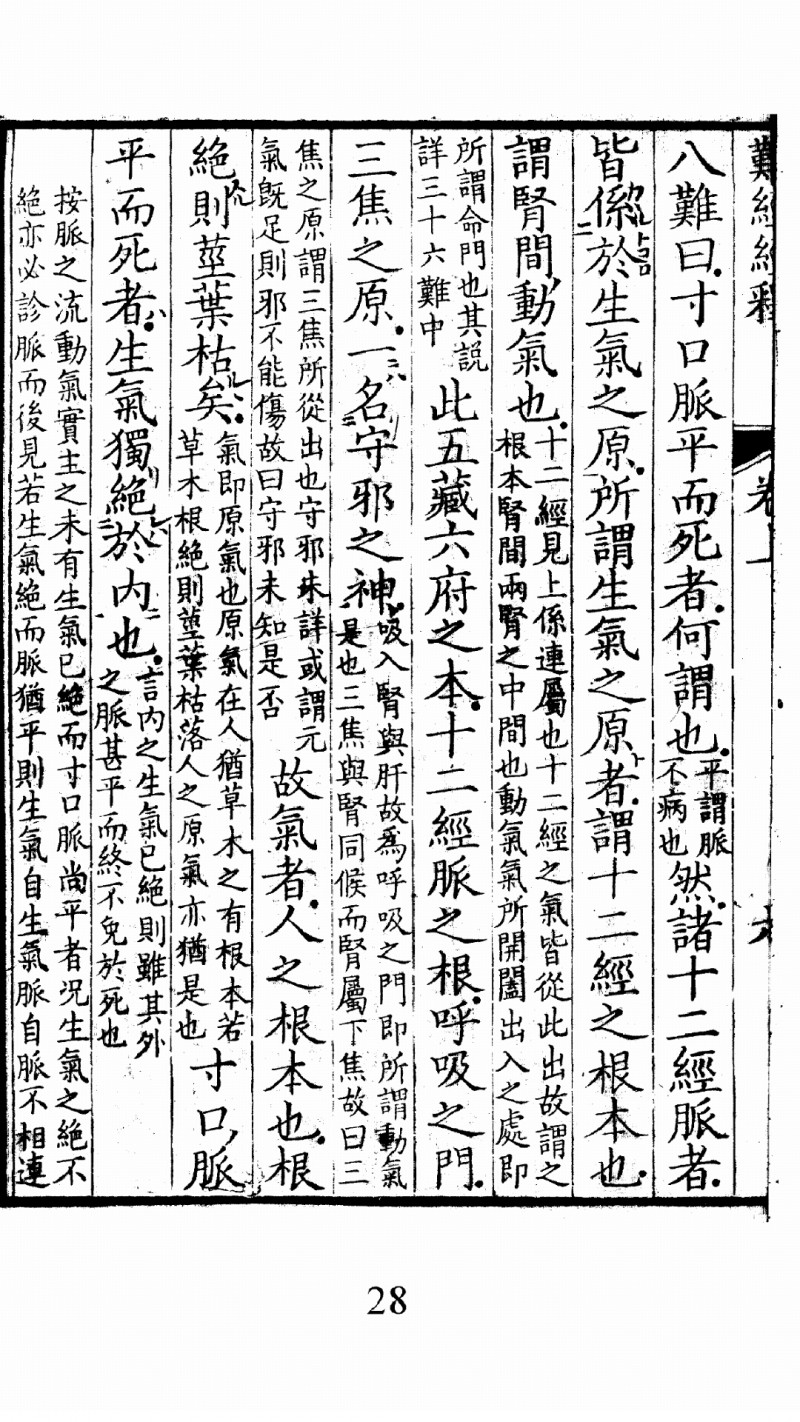 難經經釋 卷上
八難曰寸口脈平而死者何謂也平謂脈不病也然諸十二經脈者
皆係於生氣之原所謂生氣之原者謂十二經之根本也
謂腎間動氣也十二經見上係連屬也十二經之氣皆從此出故謂之根本腎間兩腎之中間也動氣氣所開闔出入之處即
所謂命門也其説詳三十六難中此五藏六府之本十二經脈之根呼吸之門
三焦之原一名守邪之神吸入腎與肝故爲呼吸之門即所謂動氣是也三焦與腎同候而腎屬下焦故曰三
焦之原謂三焦所從出也守邪未詳或謂元氣既足則邪不能傷故曰守邪未知是否故氣者人之根本也根
絶則莖葉枯矣氣即原氣也原氣在人猶草木之有根本若草木根絶則莖葉枯落人之原氣亦猶是也寸口脈
平而死者生氣獨絶於内也言内之生氣已絶則雖其外之脈甚平而終不免於死也
按脈之流動氣實主之未有生氣已絶而寸口脈尚平者況生氣之絶不
絶亦必診脈而後見若生氣絶而脈猶平則生氣自生氣脈自脈不相連
28